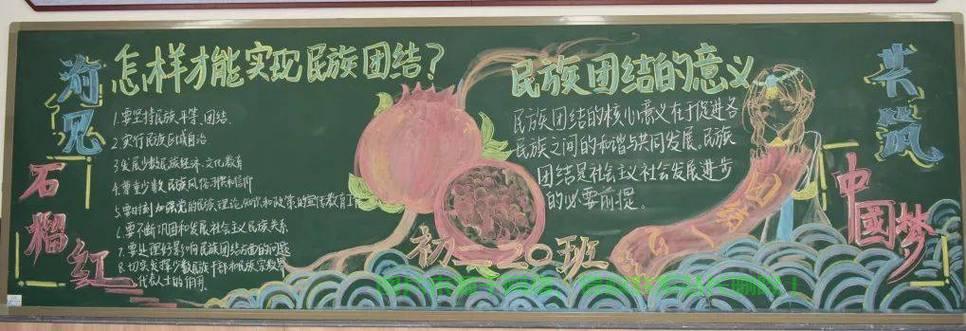 渝见
石榴红
怎样才能实现民族团结？
1.要坚持民族平等、团结
2.实行民族区域自治
3.发展少数民族经济、文化教育
4.尊重少数民族风俗习惯和信仰
5.要时刻加强党的民族理论知识和政策的宣传教育工作
6.要不断巩固和发展社会主义民族关系
7.要处理好影响民族团结方面的问题
8.切实发挥少数民族干部和民族宗教界
代表人士的作用
初二20班
民族团结的意义
民族团结的核心意义在于促进各
民族之间的和谐与共同发展。民族
团结是社会主义社会发展进步
的必要前提。
共筑
中國梦